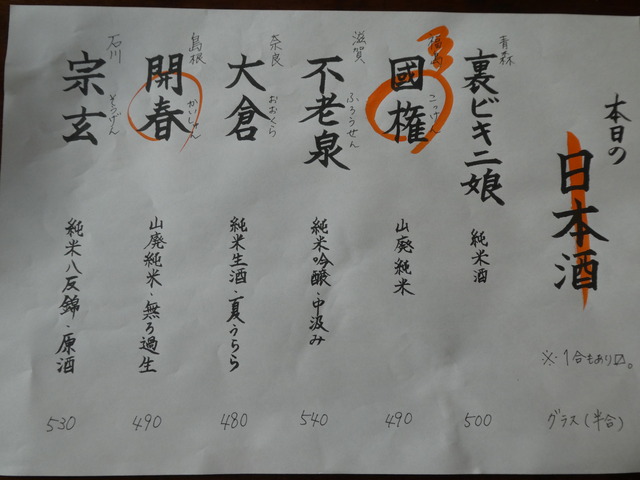 本日の
日本酒
※・1合もあり〼。
グラス(半合)
青森
裏ビキニ娘
純米酒
500
福島
國権
こっけん
山廃純米
490
滋賀
不老泉
ふろうせん
純米吟醸・中汲み
540
奈良
大倉
おおくら
純米生酒・夏うらら
480
島根
開春
かいしゅん
山廃純米・無ろ過生
490
石川
宗玄
そうげん
純米八反錦・原酒
530